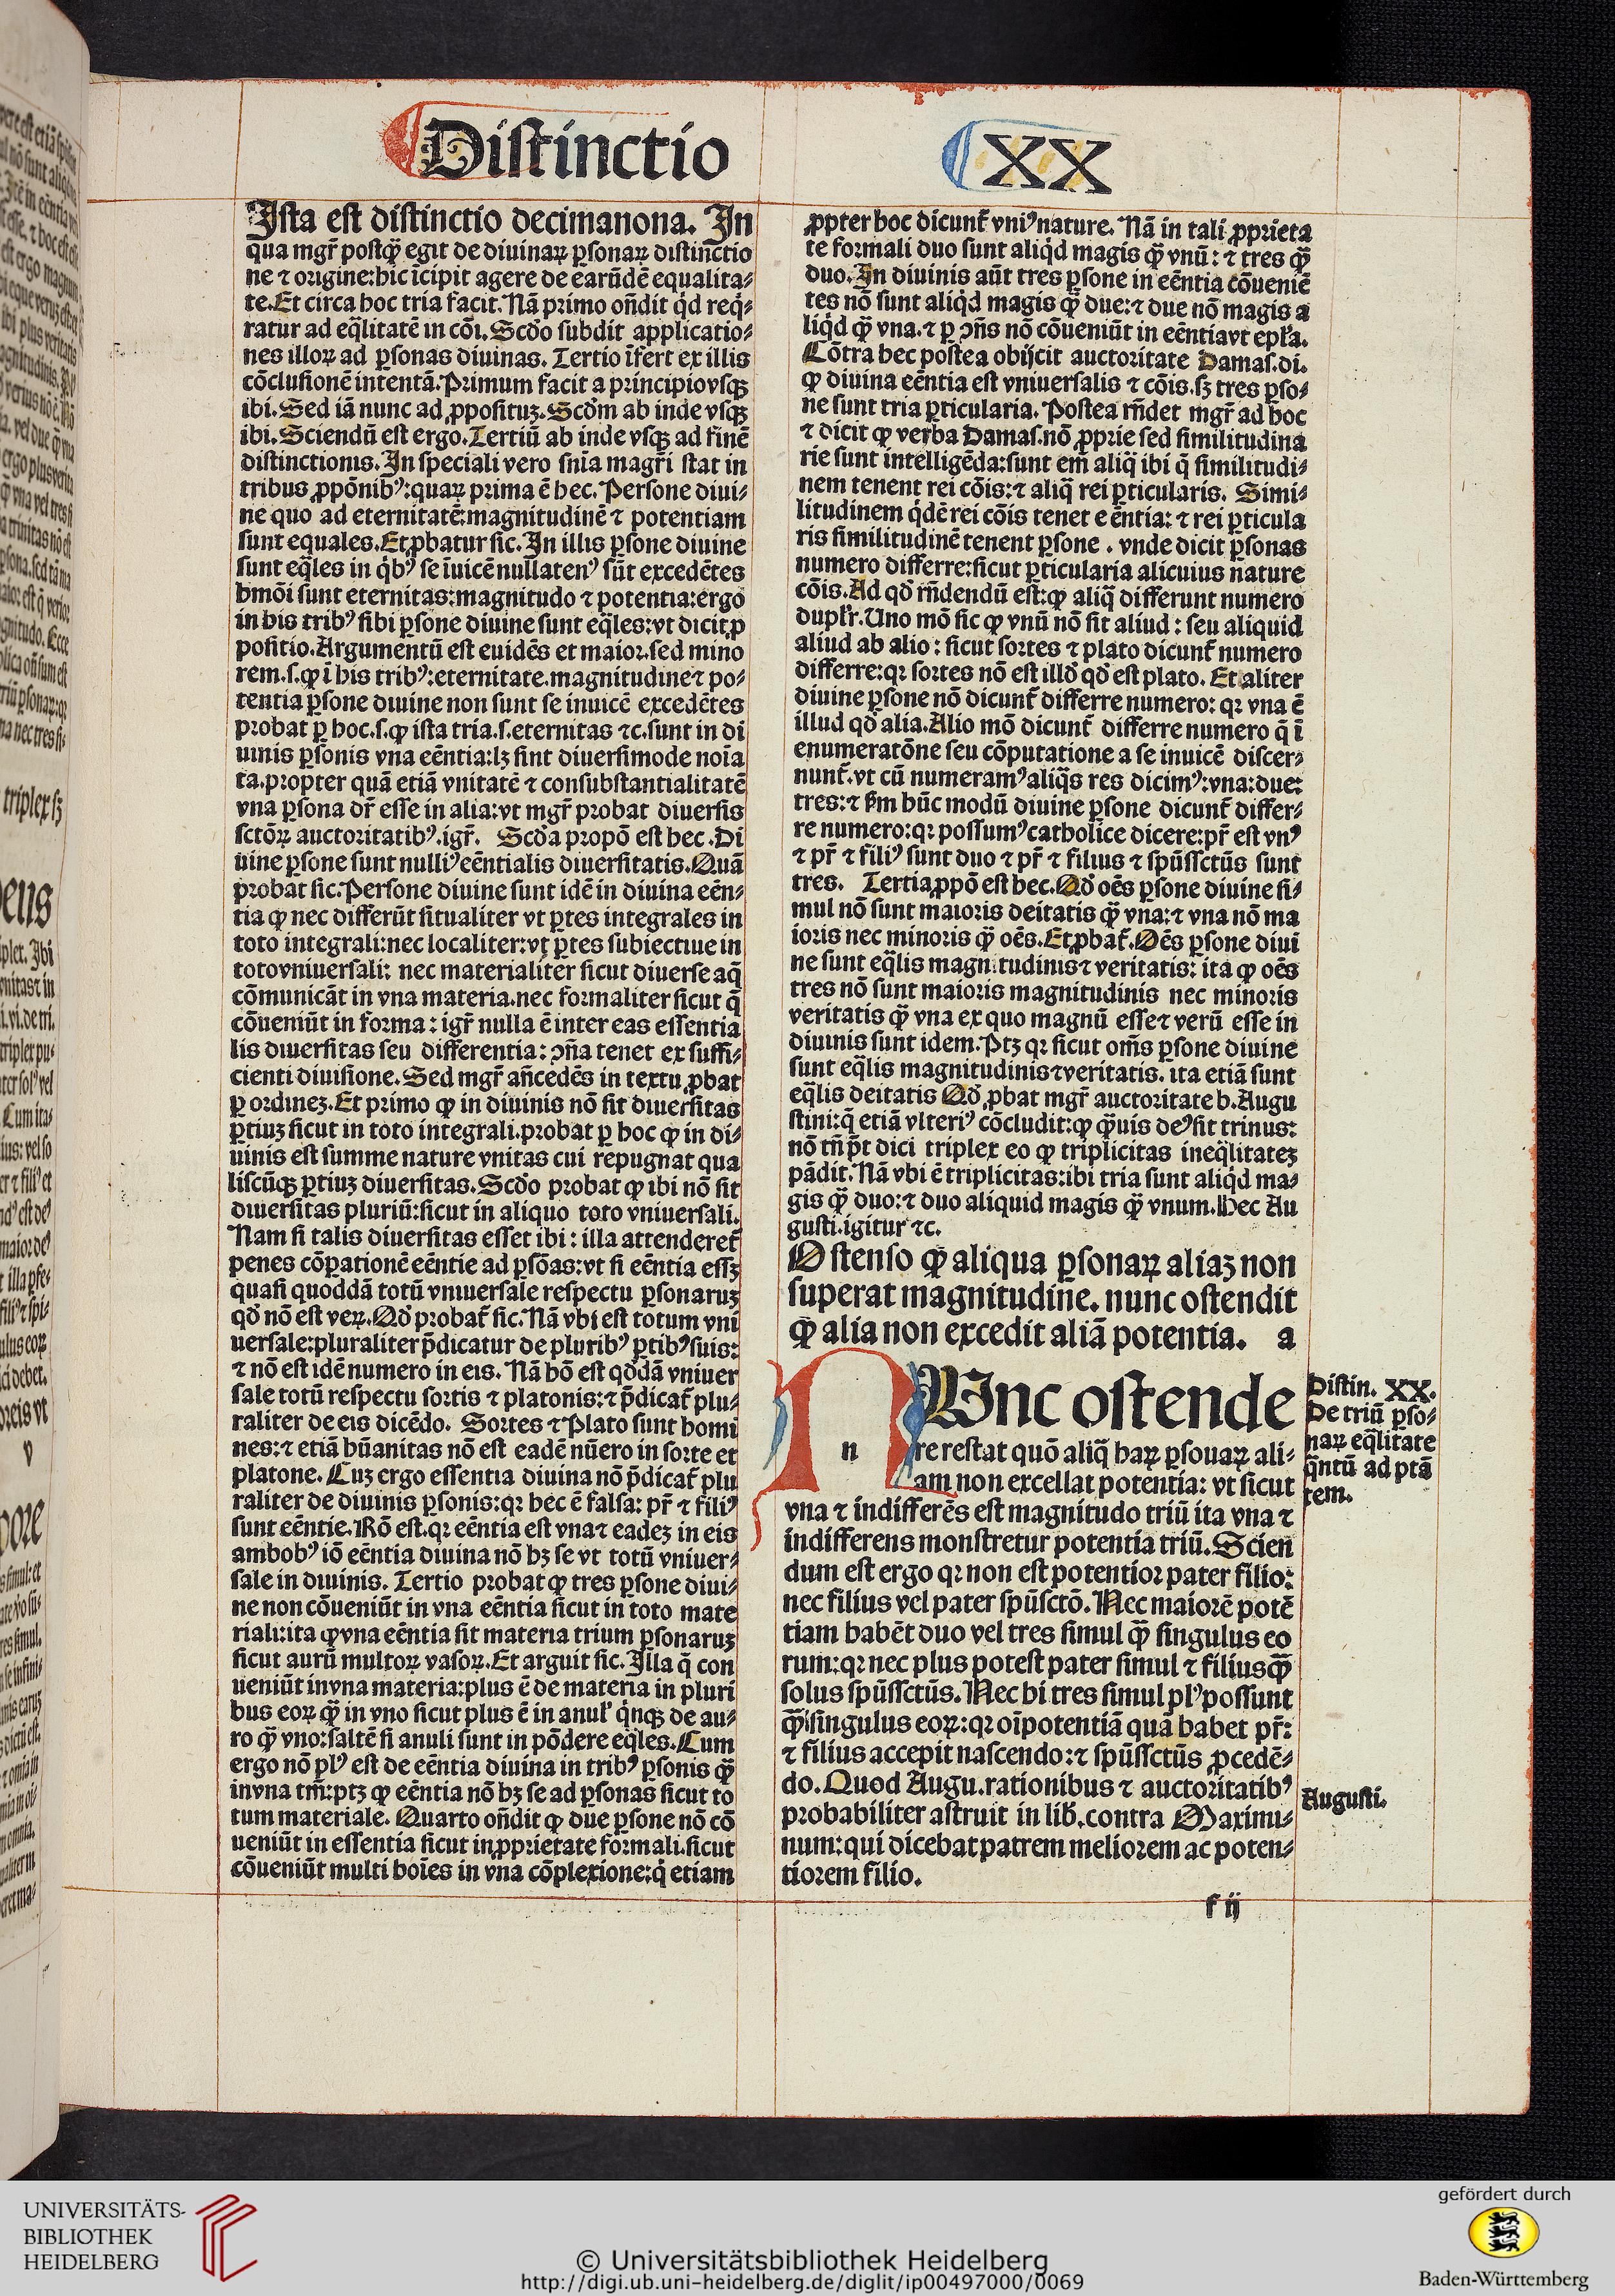 Distinctio
XX
Ista est distinctio decimanona. In
qua mgr̄ postq̄ꝫ egit de diuinaꝝ ꝑsonaꝝ distinctio
ne ⁊ origine:hic īcipit agere de earūdē equalita⸗
te.Et circa hoc tria facit. Nā primo on̄dit qd̓ req̇⸗
ratur ad eq̄litatē in cōi. Scd̓o subdit applicatio⸗
nes illoꝝ ad ꝑsonas diuinas. Tertio īfert ex illis
cōclusionē intentā. Primum facit a principio vsqꝫ
ibi. Sed iā nunc ad ꝓposituꝫ. Scd̓m ab inde vsqꝫ
ibi. Sciendū est ergo. Tertiū ab inde vsqꝫ ad finē
distinctionis. In speciali vero sn̄ia magr̄i stat in
tribus ꝓpōnibꝰ:quaꝝ prima ē hec. Persone diui⸗
ne quo ad eternitatē:magnitudinē ⁊ potentiam
sunt equales. Et ꝓbatur sic. In illis ꝑsone diuine
sunt eq̄les in q̇bꝰ se īuicē nullatenꝰ sūt excedētes
hmōi sunt eternitas:magnitudo ⁊ potentia:ergo
in his tribꝰ sibi ꝑsone diuine sunt eq̄les:vt dicit ꝓ
positio. Argumentū est euidēs et maior. sed mino
rem .s.ꝙ ī his tribꝰ:eternitate. magnitudine ⁊ po⸗
tentia ꝑsone diuine non sunt se inuicē excedētes
probat ꝑ hoc .s.ꝙ ista tria .s. eternitas ⁊c. sunt in di
uinis ꝑsonis vna eēntia:lꝫ sint diuersimode noīa
ta. propter quā etiā vnitatē ⁊ consubstantialitatē
vna ꝑsona dr̄ esse in alia:vt mgr̄ probat diuersis
sctōꝝ auctoritatibꝰ. igr̄. Scd̓a propō est hec. Di
uine ꝑsone sunt nulliꝰ eēntialis diuersitatis. Quā
probat sic. Persone diuine sunt idē in diuina eēn⸗
tia ꝙ nec differūt situaliter vt ꝑtes integrales in
toto integrali:nec localiter:vt ꝑtes subiectiue in
toto vniuersali: nec materialiter sicut diuerse aq̄
cōmunicāt in vna materia. nec formaliter sicut q̄
cōueniūt in forma : igr̄ nulla ē inter eas essentia
lis diuersitas seu differentia : ↄn̄a tenet ex suffi⸗
cienti diuisione. Sed mgr̄ an̄cedēs in textu ꝓbat
ꝑ ordineꝫ. Et primo ꝙ in diuinis nō sit diuersitas
ꝑtiuꝫ sicut in toto integrali. probat ꝑ hoc ꝙ in di⸗
uinis est summe nature vnitas cui repugnat qua
liscūqꝫ ꝑtiuꝫ diuersitas. Scd̓o probat ꝙ ibi nō sit
diuersitas pluriū:sicut in aliquo toto vniuersali.
Nam si talis diuersitas esset ibi : illa attenderet̄
penes cōpationē eēntie ad ꝑsōas:vt si eēntia essꝫ
quasi quoddā totū vniuersale respectu ꝑsonaruꝫ
qd̓ nō est veꝝ. Qd̓ probat̄ sic. Nā vbi est totum vni
uersale:pluraliter p̄dicatur de pluribꝰ ꝑtibꝰ suis:
⁊ nō est idē numero in eis. Nā hō est qd̓dā vniuer
sale totū respectu sortis ⁊ platonis:⁊ p̄dicat̄ plu⸗
raliter de eis dicēdo. Sortes ⁊ Plato sunt homi
nes:⁊ etiā hūanitas nō est eadē nūero in sorte et
platone. Cuꝫ ergo essentia diuina nō p̄dicat̄ plu
raliter de diuinis ꝑsonis:qꝛ hec ē falsa: pr̄ ⁊ filiꝰ
sunt eēntie. Rō est. qꝛ eēntia est vna ⁊ eadeꝫ in eis
ambobꝰ iō eēntia diuina nō hꝫ se vt totū vniuer⸗
sale in diuinis. Tertio probat ꝙ tres ꝑsone diui⸗
ne non cōueniūt in vna eēntia sicut in toto mate
riali:ita ꝙ vna eēntia sit materia trium ꝑsonaruꝫ
sicut aurū multoꝝ vasoꝝ. Et arguit sic. Illa q̄ con
ueniūt in vna materia:plus ē de materia in pluri
bus eoꝝ q̄ꝫ in vno sicut plus ē in anul̓ q̇nqꝫ de au⸗
ro q̄ꝫ vno:saltē si anuli sunt in pōdere eq̄les. Cum
ergo nō plꝰ est de eēntia diuina in tribꝰ ꝑsonis q̄ꝫ
in vna tm̄:ptꝫ ꝙ eēntia nō hꝫ se ad ꝑsonas sicut to
tum materiale. Quarto on̄dit ꝙ due ꝑsone nō cō
ueniūt in essentia sicut in ꝓprietate formali. sicut
cōueniūt multi hoīes in vna cōplexione:q̇ etiam
ꝓpter hoc dicunt̄ vniꝰ nature. Nā in tali ꝓprieta
te formali duo sunt aliqd̓ magis q̄ꝫ vnū: ⁊ tres q̄ꝫ
duo. In diuinis aūt tres ꝑsone in eēntia cōueniē
tes nō sunt aliqd̓ magis q̄ꝫ due:⁊ due nō magis a
liqd̓ q̄ꝫ vna. ⁊ ꝑ ↄn̄s nō cōueniūt in eēntia vt epl̓a.
Cōtra hec postea obijcit auctoritate Damas. di.
ꝙ diuina eēntia est vniuersalis ⁊ cōis. sꝫ tres ꝑso⸗
ne sunt tria ꝑticularia. Postea rn̄det mgr̄ ad hoc
⁊ dicit ꝙ verba Damas. nō ꝓprie sed similitudina
rie sunt intelligēda:sunt em̄ aliq̄ ibi q̄ similitudi⸗
nem tenent rei cōis:⁊ aliq̄ rei ꝑticularis. Simi⸗
litudinem q̇dē rei cōis tenet eēntia: ⁊ rei ꝑticula
ris similitudinē tenent ꝑsone . vnde dicit ꝑsonas
numero differre:sicut ꝑticularia alicuius nature
cōis. Ad qd̓ rn̄dendū est:ꝙ aliq̄ differunt numero
dupl̓r. Uno mō sic ꝙ vnū nō sit aliud : seu aliquid
aliud ab alio : sicut sortes ⁊ plato dicunt̄ numero
differre:qꝛ sortes nō est illd̓ qd̓ est plato. Et aliter
diuine ꝑsone nō dicunt̄ differre numero: qꝛ vna ē
illud qd̓ alia. Alio mō dicunt̄ differre numero q̄ ī
enumeratōne seu cōputatione a se inuicē discer⸗
nunt̄. vt cū numeramꝰ aliq̄s res dicimꝰ:vna:due:
tres:⁊ ẜm hūc modū diuine ꝑsone dicunt̄ differ⸗
re numero:qꝛ possumꝰ catholice dicere:pr̄ est vnꝰ
⁊ pr̄ ⁊ filiꝰ sunt duo ⁊ pr̄ ⁊ filius ⁊ spūssctūs sunt
tres. Tertia ꝓpō est hec. Qd̓ oēs ꝑsone diuine si⸗
mul nō sunt maioris deitatis q̄ꝫ vna:⁊ vna nō ma
ioris nec minoris q̄ꝫ oēs. Et ꝓbat̄. Oēs ꝑsone diui
ne sunt eq̄lis magnitudinis ⁊ veritatis: ita ꝙ oēs
tres nō sunt maioris magnitudinis nec minoris
veritatis q̄ꝫ vna ex quo magnū esse ⁊ verū esse in
diuinis sunt idem. Ptꝫ qꝛ sicut om̄s ꝑsone diuine
sunt eq̄lis magnitudinis ⁊ veritatis. ita etiā sunt
eq̄lis deitatis Qd̓ ꝓbat mgr̄ auctoritate b. Augu
stini:q̇ etiā vlteriꝰ cōcludit:ꝙ q̄ꝫuis deꝰ sit trinus:
nō tn̄ pt̄ dici triplex eo ꝙ triplicitas ineq̄litateꝫ
pādit. Nā vbi ē triplicitas:ibi tria sunt aliqd̓ ma⸗
gis q̄ꝫ duo:⁊ duo aliquid magis q̄ꝫ vnum. Hec Au
gusti. igitur ⁊c.
Ostenso ꝙ aliqua ꝑsonaꝝ aliaꝫ non
superat magnitudine. nunc ostendit
ꝙ alia non excedit aliā potentia. a
n
NUnc ostende
re restat quō aliq̄ haꝝ ꝑsouaꝝ ali⸗
am non excellat potentia: vt sicut
vna ⁊ indifferēs est magnitudo triū ita vna ⁊
indifferens monstretur potentia triū. Scien
dum est ergo qꝛ non est potentior pater filio:
nec filius vel pater spūsctō. Nec maiorē potē
tiam habēt duo vel tres simul q̄ꝫ singulus eo
rum:qꝛ nec plus potest pater simul ⁊ filius q̄ꝫ
solus spūssctūs. Nec hi tres simul plꝰ possunt
q̄ꝫ singulus eoꝝ:qꝛ oīpotentiā quā habet pr̄:
⁊ filius accepit nascendo:⁊ spūssctūs ꝓcedē⸗
do. Quod Augu. rationibus ⁊ auctoritatibꝰ
probabiliter astruit in lib̓. contra Maximi⸗
num:qui dicebat patrem meliorem ac poten⸗
tiorem filio.
Distin. XX.
De triū ꝑso⸗
naꝝ eq̄litate
q̄ntū ad ptā
tem.
Augusti.
f ij
UNIVERSITÄTS-
BIBLIOTHEK
HEIDELBERG
© Universitätsbibliothek Heidelberg
http://digi.ub.uni-heidelberg.de/diglit/ip00497000/0069
gefördert durch
Baden-Württemberg